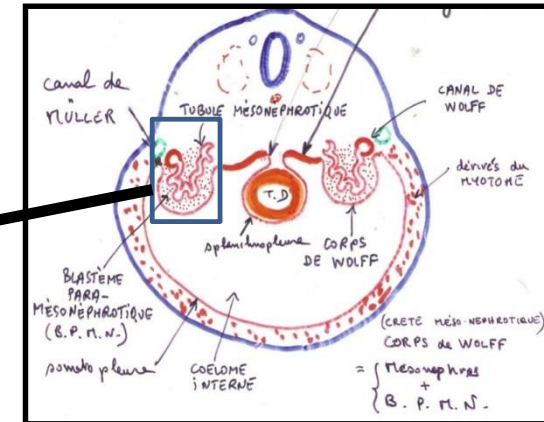 canal de
MÜLLER
TUBULE MÉSONEPHROTIQUE
CANAL DE
WOLFF
dérivés du
MYOTOME
T.D
splanchnopleure
CORPS
DE WOLFF
BLASTÈME
PARA-
MÉSONÉPHROTIQUE
(B.P.M.N.)
somatopleure
COELOME
INTERNE
(CRETE MÉSO-NEPHROTIQUE)
CORPS de WOLFF
= { Mesonephros
+
B. P. M. N.